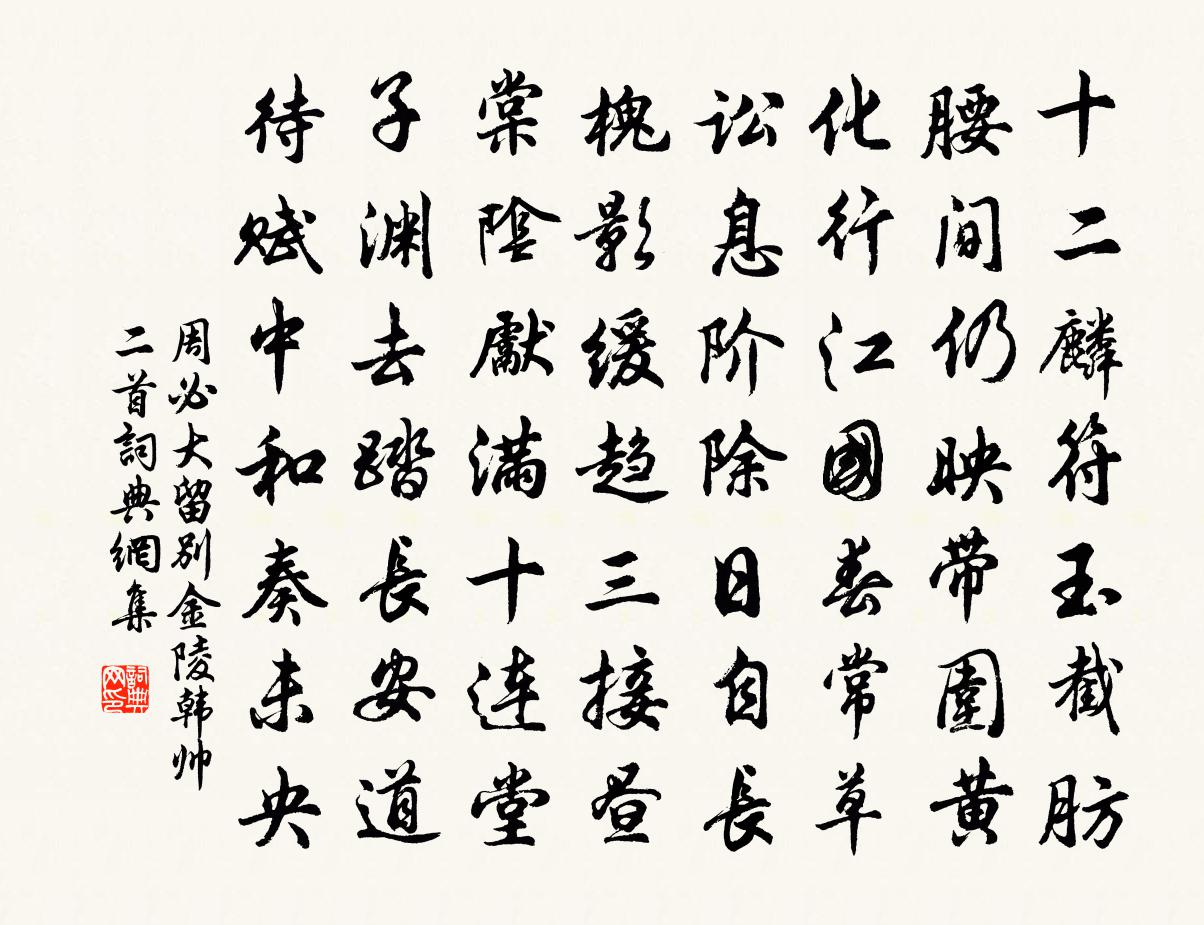 十二麟符玉截肪
腰间仍映带圍黄
化行江國春常草
讼息阶除日自長
槐影缓趋三接昼
棠陰獻满十连堂
子渊去踏長安道
待赋中和奏未央
周必大留别金陵韩帅
二首詞典網集
詞典
网印